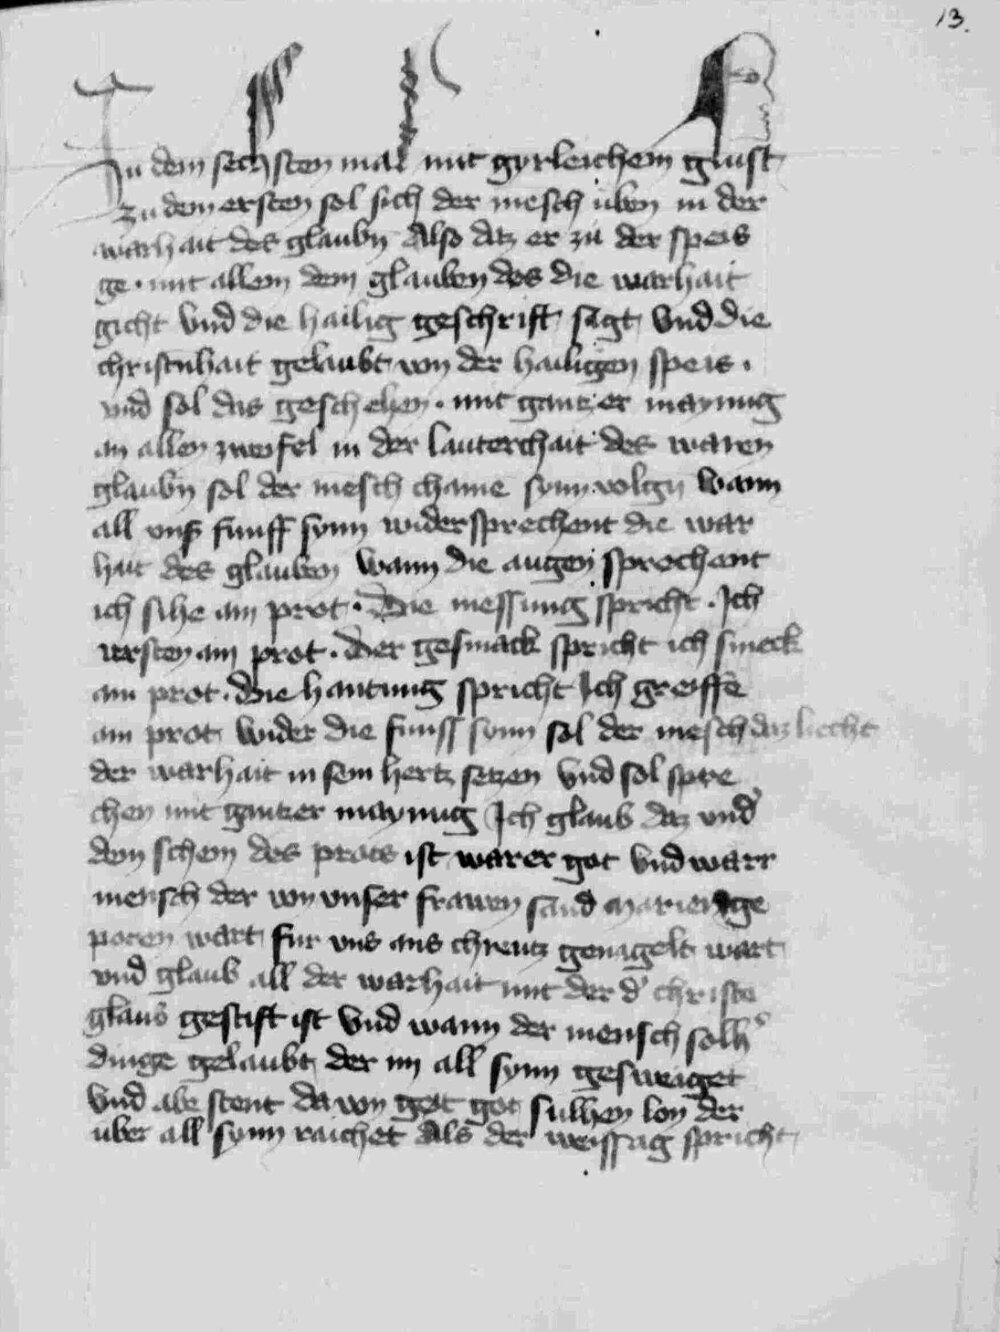 13.
In dem sechsten mal mit gyrleichem gunst
zu dem ersten sol sich der mesch uben in der
warhait des glaubn Also datz er zu der speis
ge · mit allem dem glauben des die warhait
gicht Vnd die hailig geschrift sagt Vnd die
christnhait gelaubt von der hailigen speis ·
vnd sol das geschehen · mit gantzer maynung
an allen zweifel in der lauterchait des waren
glaubn sol der mesch chaine synn volgn wann
all vnß funff synn widersprechent die war
hait des glauben Wann die augen sprechent
ich sihe ain prot · Die messung spricht · Ich
ain prot · Der gesmack spricht ich smeck
ain prot · Die hantung spricht Ich greiffe
ain prot Wider die funff synn sol der mesch daz liecht
der warhait in sein hertz setzen Vnd sol spre
chen mit gantzer maynung Ich glaub daz vnd'
dem schein des protes ist warer got Vnd warr
mensch der von vnser frawen sand marien ge
poren wart fur vns ans chreutz genagelt wart
vnd glaub all der warhait mit der d' christe
glaub gestift ist Vnd wann der mensch solh'
dinge gelaubt der im all synn gesweiget
Vnd abe stent da von get got sulhen lon der
uber all synn raichet Als der weissag spricht